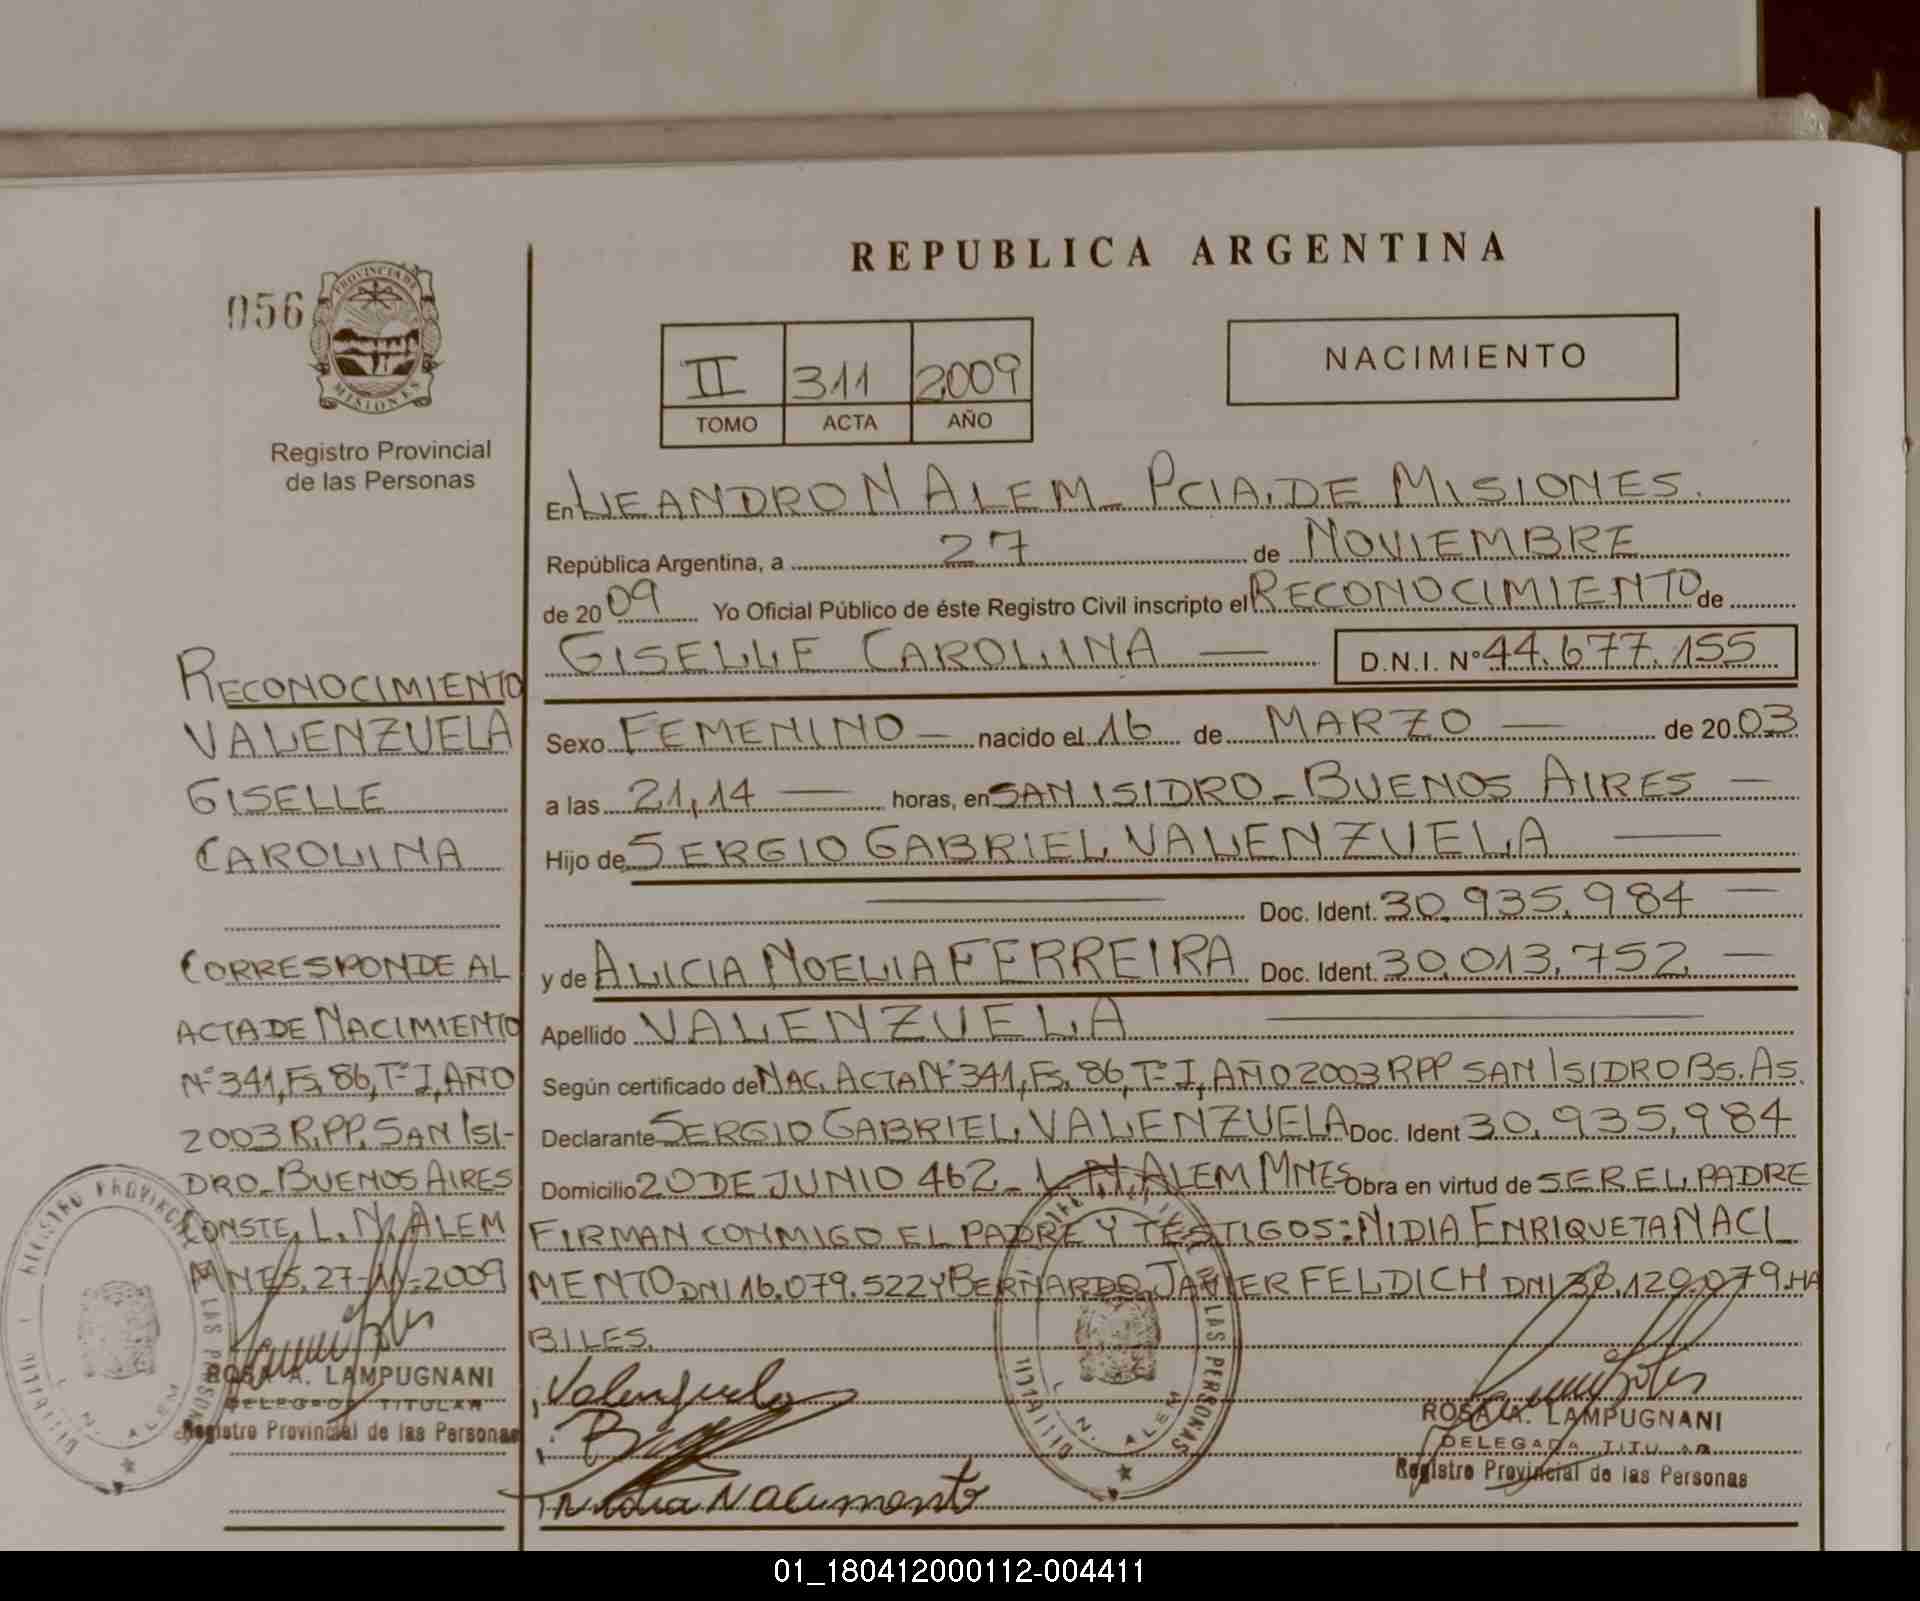 REPUBLICA ARGENTINA
056
PROVINCIA DE
MISIONES
Registro Provincial
de las Personas
II 311 2009
TOMO ACTA AÑO
NACIMIENTO
En LEANDRO N ALEM_ PCIA. DE MISIONES.
República Argentina, a 27 de NOVIEMBRE
de 20 09 Yo Oficial Público de éste Registro Civil inscripto el RECONOCIMIENTO de
GISELLE CAROLINA — D.N.I. Nº 44.677.155
Sexo FEMENINO — nacido el 16 de MARZO — de 20 03
a las 21,14 — horas, en SAN ISIDRO_ BUENOS AIRES —
Hijo de SERGIO GABRIEL VALENZUELA —
— Doc. Ident. 30.935.984 —
y de ALICIA NOELIA FERREIRA Doc. Ident. 30.013.752 —
Apellido VALENZUELA —
Según certificado de NAC. ACTA Nº 341, Fs. 86, Tº I, AÑO 2003 RPP SAN ISIDRO BS. AS.
Declarante SERGIO GABRIEL VALENZUELA Doc. Ident 30.935.984
Domicilio 20 DE JUNIO 462_ L.N. ALEM MNES Obra en virtud de SER EL PADRE
FIRMAN CONMIGO EL PADRE Y TESTIGOS: NIDIA ENRIQUETA NACI_
MENTO DNI 16.079.522 Y BERNARDO JAVIER FELDICH DNI 30.120.079. HA
BILES.
Valenzuela
Nidia Nacimento
ROSA A. LAMPUGNANI
DELEGADA TITULAR
Registro Provincial de las Personas
RECONOCIMIENTO
VALENZUELA
GISELLE
CAROLINA
CORRESPONDE AL
ACTA DE NACIMIENTO
Nº 341, Fs. 86, Tº I, AÑO
2003 R.PP. SAN ISI-
DRO_ BUENOS AIRES
CONSTE. L. N. ALEM
MNES. 27-11-2009
ROSA A. LAMPUGNANI
DELEGADA TITULAR
Registro Provincial de las Personas
REGISTRO PROVINCIAL DE LAS PERSONAS
L. N. ALEM
LAS PERSONAS
L. N. ALEM
01_180412000112-004411